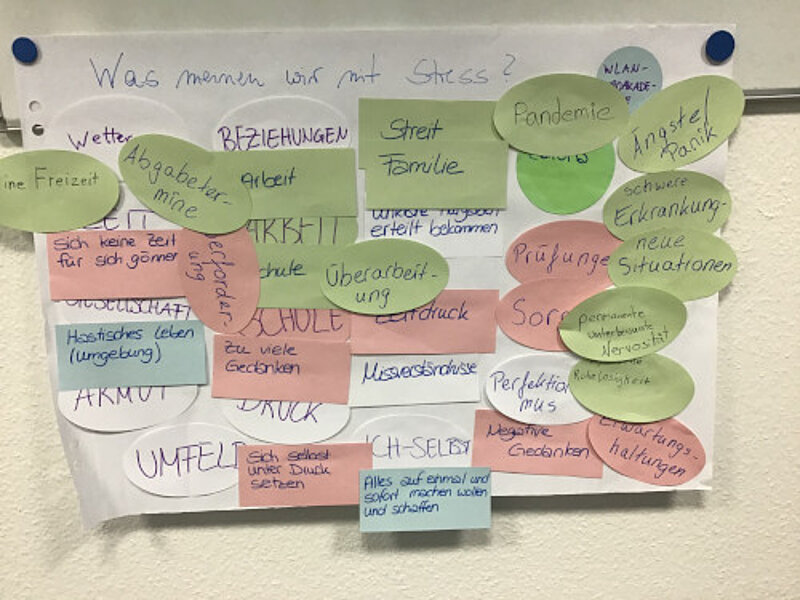 Was meinen wir mit Stress?
WLAN-
Wetter
BEZIEHUNGEN
Streit
Familie
Pandemie
Ängste/
Panik
ine Freizeit
Abgabeter-
mine
Arbeit
schwere
Erkrankung-
ZEIT
ARBEIT
erteilt bekommen
sich keine Zeit
für sich gönnen
erforder-
ung
chule
Überarbeit-
ung
Prüfunge
neue
Situationen
SCHULE
Zeitdruck
Sor
permanente
unterbewusste
Nervosität
Hastisches Leben
(umgebung)
Zu viele
Gedanken
Missverständnisse
Perfektio
mus
Ruhelosigkeit
ARMUT
DRUCK
UMFELD
Sich selbst
unter Druck
setzen
ICH-SELBST
Negative
Gedanken
Erwartungs-
haltungen
Alles auf einmal und
sofort machen wollen
und schaffen